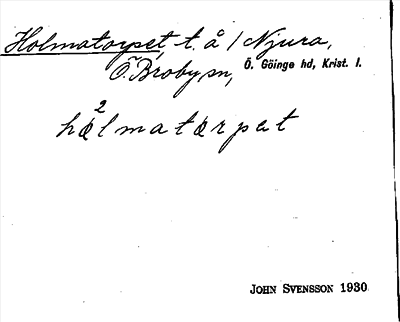 Holmatorpet t. å / Njura,
Ö. Broby sn, Ö. Göinge hd, Krist. l.
hæ²lmatærpet
JOHN SVENSSON 1930